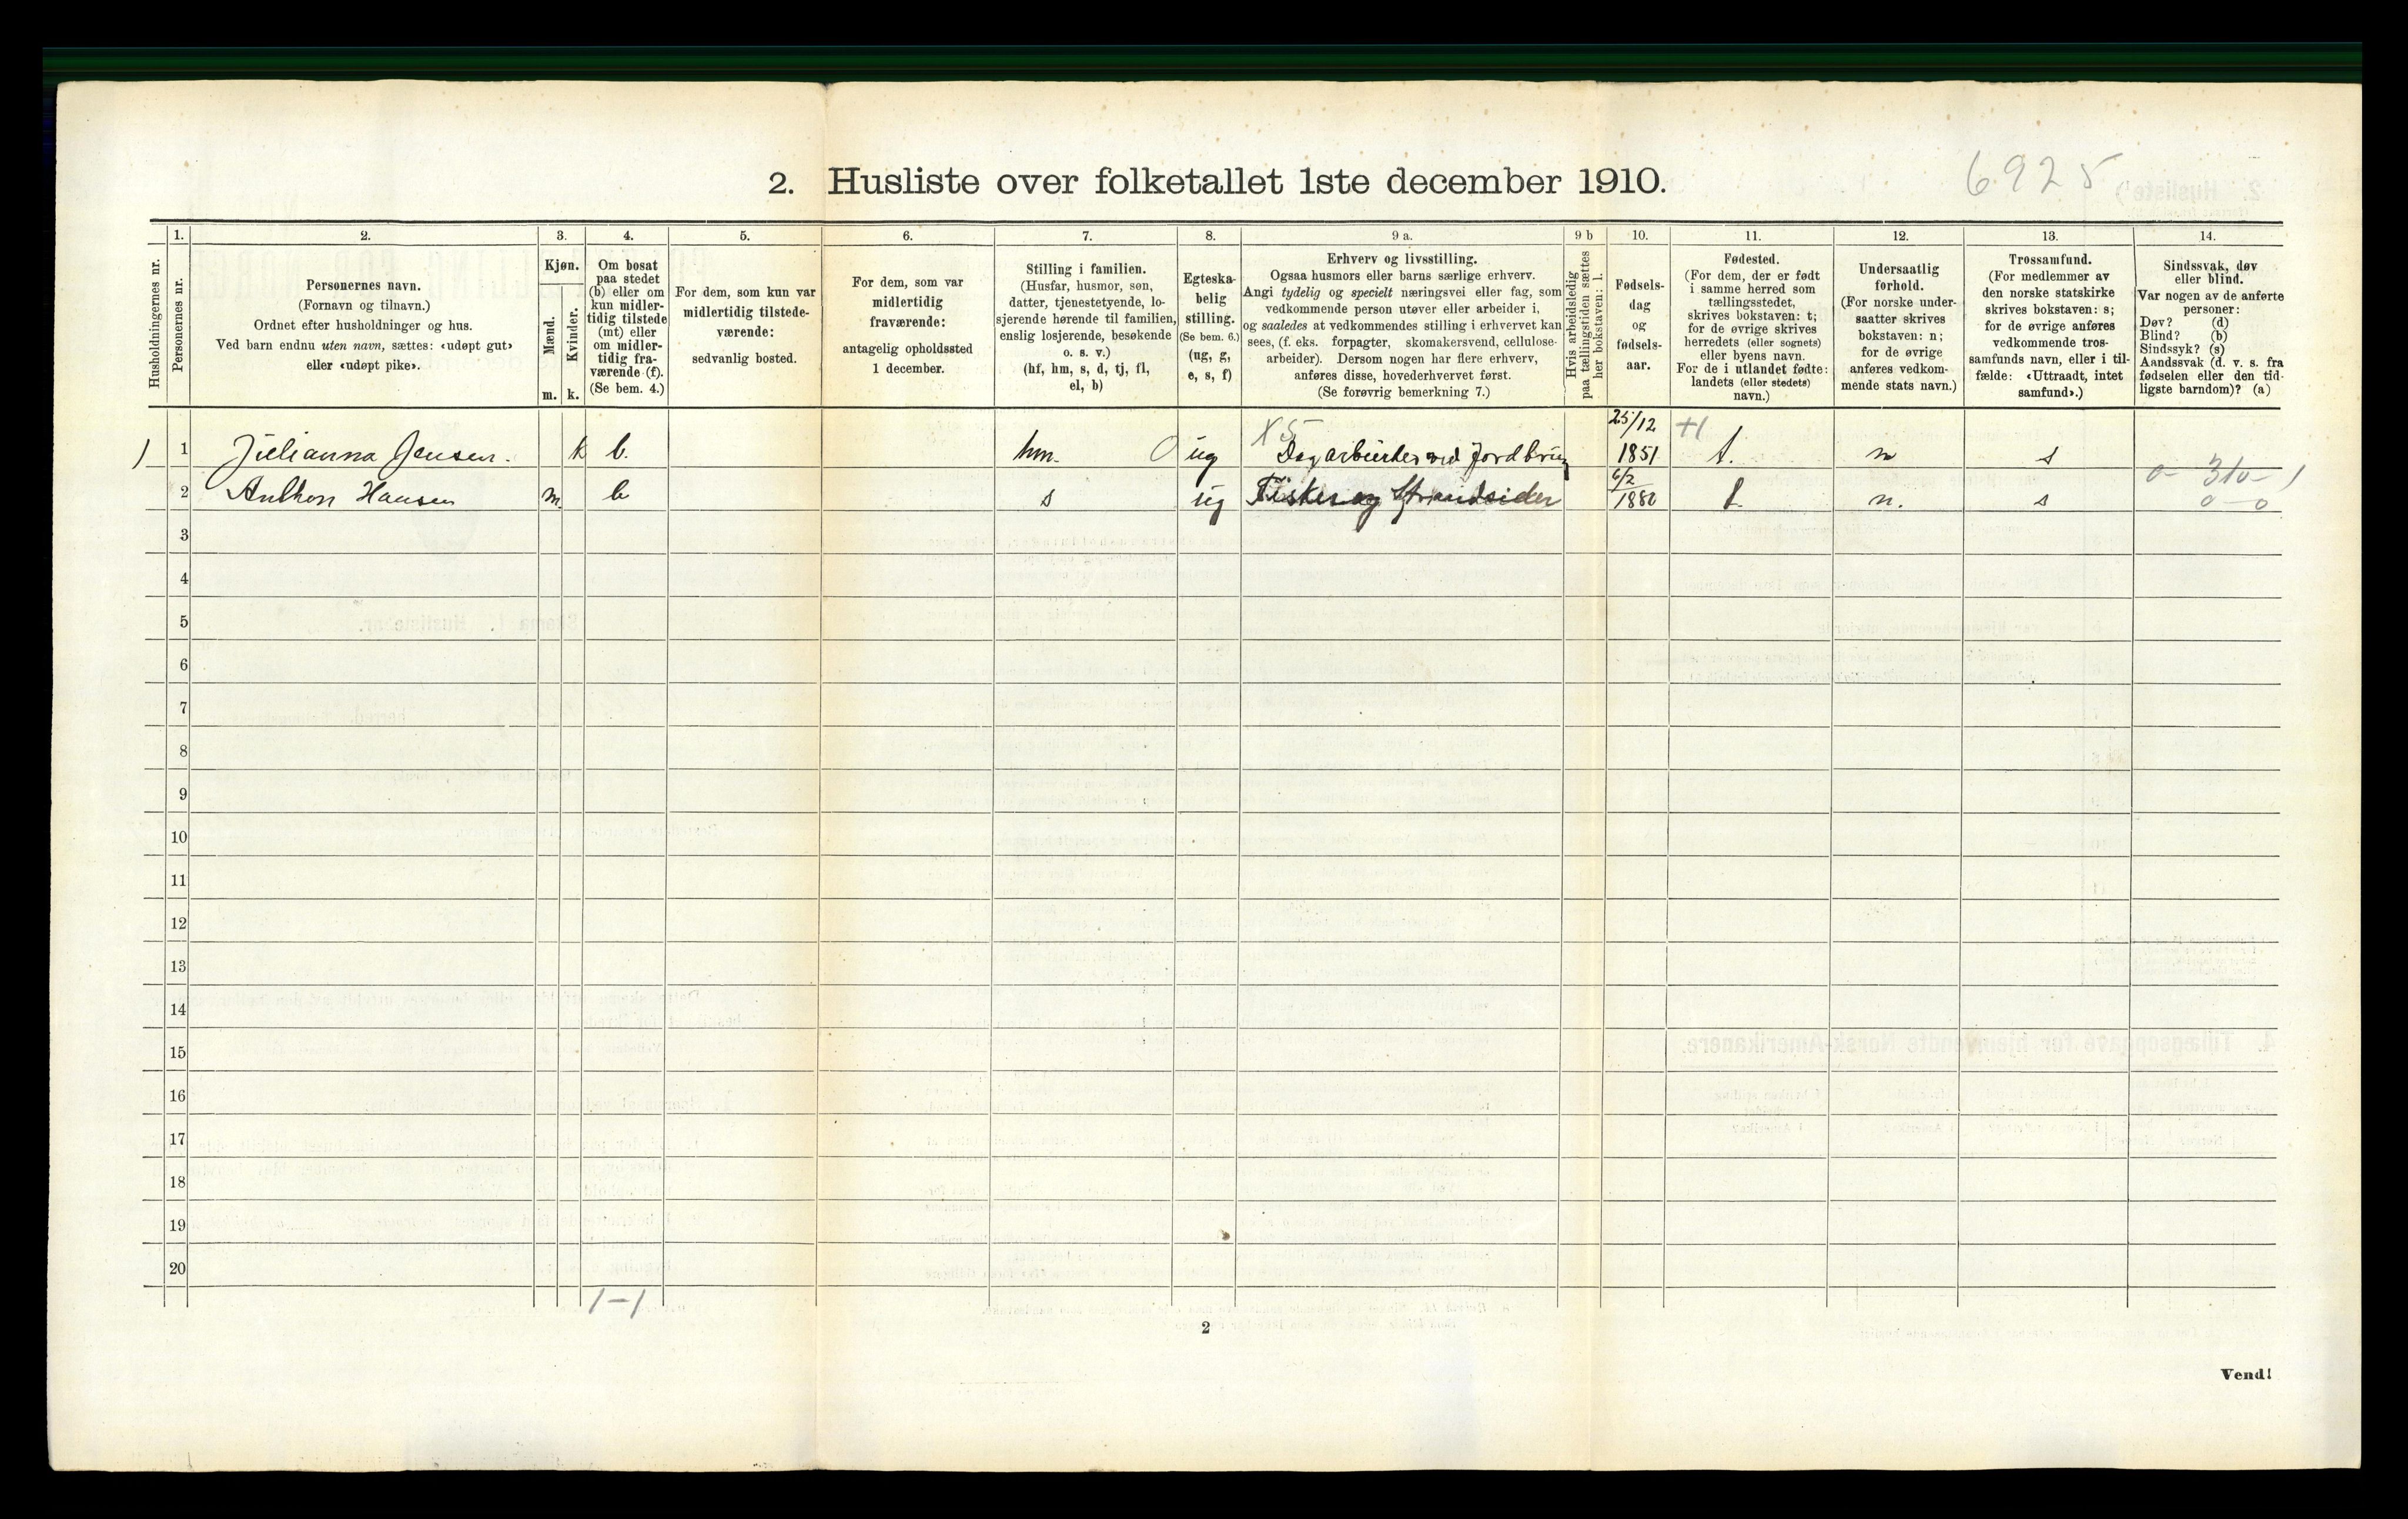 2. Husliste over folketallet 1ste december 1910.
6925
Husholdningernes nr.
1.
Personernes nr.
2.
Personernes navn.
(Fornavn og tilnavn.)
Ordnet efter husholdninger og hus.
Ved barn endnu uten navn, sættes: «udøpt gut»
eller «udøpt pike».
3.
Kjøn.
Mænd.
Kvinder.
m. k.
4.
Om bosat
paa stedet
(b) eller om
kun midler-
tidig tilstede
(mt) eller
om midler-
tidig fra-
værende (f).
(Se bem. 4.)
5.
For dem, som kun var
midlertidig tilstede-
værende:
sedvanlig bosted.
6.
For dem, som var
midlertidig
fraværende:
antagelig opholdssted
1 december.
7.
Stilling i familien.
(Husfar, husmor, søn,
datter, tjenestetyende, lo-
sjerende hørende til familien,
enslig losjerende, besøkende
o. s. v.)
(hf, hm, s, d, tj, fl,
el, b)
8.
Egteska-
belig
stilling.
(Se bem. 6.)
(ug, g,
e, s, f)
9 a.
Erhverv og livsstilling.
Ogsaa husmors eller barns særlige erhverv.
Angi tydelig og specielt næringsvei eller fag, som
vedkommende person utøver eller arbeider i,
og saaledes at vedkommendes stilling i erhvervet kan
sees, (f. eks. forpagter, skomakersvend, cellulose-
arbeider). Dersom nogen har flere erhverv,
anføres disse, hovederhvervet først.
(Se forøvrig bemerkning 7.)
9 b
Hvis arbeidsledig
paa tællingstiden sættes
her bokstaven: l.
10.
Fødsels-
dag
og
fødsels-
aar.
11.
Fødested.
(For dem, der er født
i samme herred som
tællingsstedet,
skrives bokstaven: t;
for de øvrige skrives
herredets (eller sognets)
eller byens navn.
For de i utlandet fødte:
landets (eller stedets)
navn.)
12.
Undersaatlig
forhold.
(For norske under-
saatter skrives
bokstaven: n;
for de øvrige
anføres vedkom-
mende stats navn.)
13.
Trossamfund.
(For medlemmer av
den norske statskirke
skrives bokstaven: s;
for de øvrige anføres
vedkommende tros-
samfunds navn, eller i til-
fælde: «Uttraadt, intet
samfund».)
14.
Sindssvak, døv
eller blind.
Var nogen av de anførte
personer:
Døv? (d)
Blind? (b)
Sindssyk? (s)
Aandssvak (d. v. s. fra
fødselen eller den tid-
ligste barndom)? (a)
1) 1 Julianna Jensen. k b. hm. 0 ug X 5 Dagarbeider ved Jordbrug 25/12 1851 +1 t. n s
2 Anthon Hansen m. b s ug Fisker og Strandsider 6/2 1880 t. n. s
0 - 310 - 1
0 - 0
3
4
5
6
7
8
9
10
11
12
13
14
15
16
17
18
19
20
1 - 1
2
Vend!